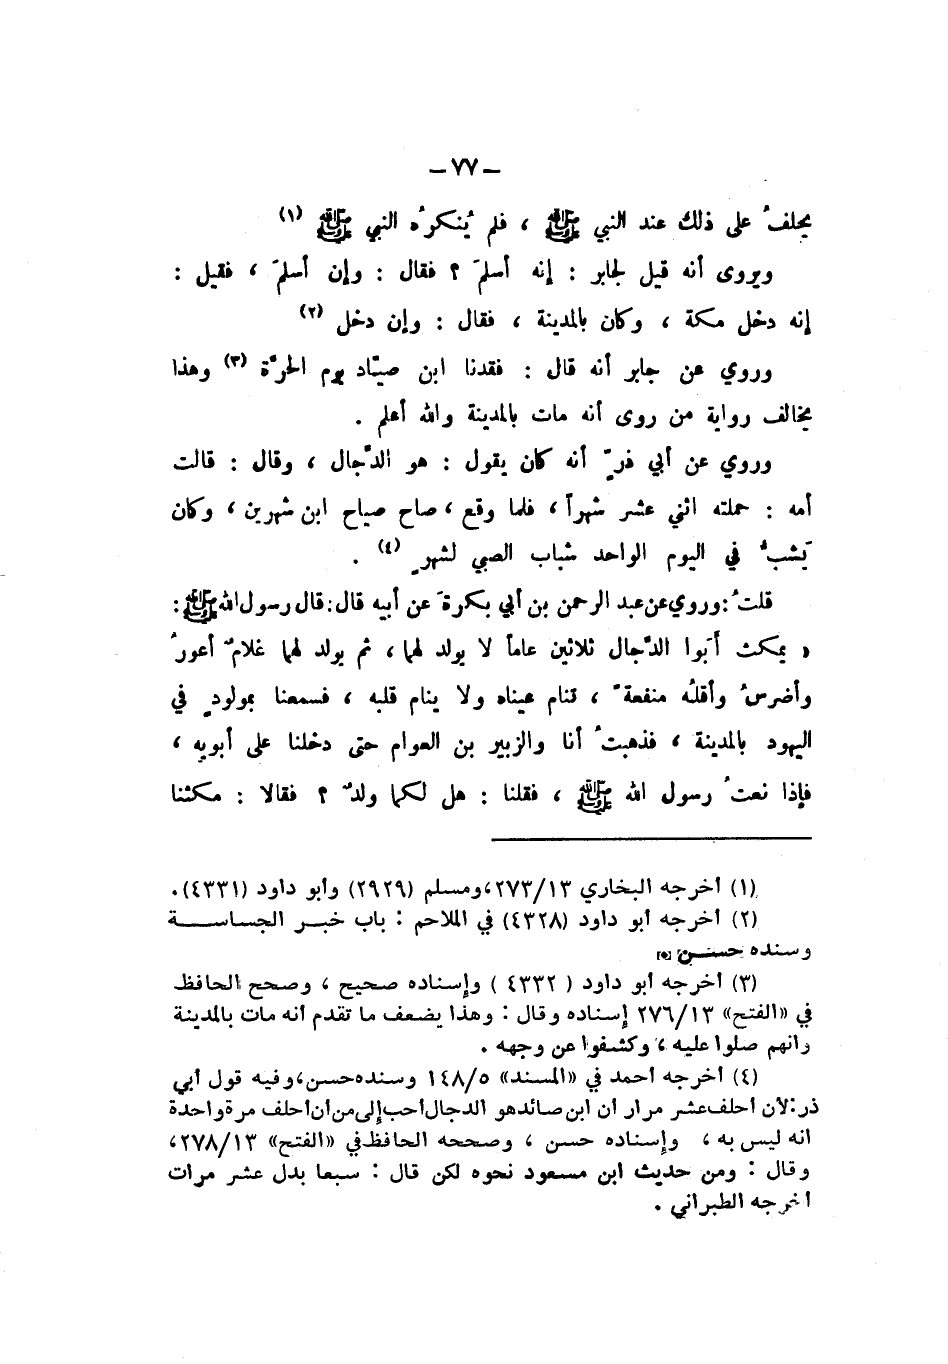 – ٧٧ –
يحلفُ على ذلك عند النبي ﷺ ، فلم يُنكرْه النبي ﷺ (١)
ويروى أنه قيل لجابر : إنه أسلمَ ؟ فقال : وإن أسلمَ ، فقيل :
إنه دخل مكة ، وكان بالمدينة ، فقال : وإن دخل (٢)
وروي عن جابر أنه قال : فقدنا ابن صيّاد يوم الحرّة (٣) وهذا
يخالف رواية من روى أنه مات بالمدينة والله أعلم .
وروي عن أبي ذرٍّ أنه كان يقول : هو الدَّجال ، وقال : قالت
أمه : حملته اثني عشر شهراً ، فلما وقع ، صاح صياح ابن شهرين ، وكان
يَشبُّ في اليوم الواحد شباب الصبي لشهرٍ (٤) .
قلتُ : وروي عن عبد الرحمن بن أبي بكرةَ عن أبيه قال : قال رسول الله ﷺ :
« يمكث أَبَوا الدَّجال ثلاثين عاماً لا يولد لهما ، ثم يولد لهما غلامٌ أعورُ
وأضرسُ وأقلُّه منفعةً ، تنام عيناه ولا ينام قلبه ، فسمعنا بمولودٍ في
اليهود بالمدينة ، فذهبتُ أنا والزبير بن العوام حتى دخلنا على أبويه ،
فإذا نعتُ رسول الله ﷺ ، فقلنا : هل لكما ولدٌ ؟ فقالا : مكثنا
(١) أخرجه البخاري ٢٧٣/١٣ ، ومسلم (٢٩٢٩) وأبو داود (٤٣٣١) .
(٢) أخرجه أبو داود (٤٣٢٨) في الملاحم : باب خبر الجساسة
وسنده حسن
(٣) أخرجه أبو داود ( ٤٣٣٢ ) وإسناده صحيح ، وصحح الحافظ
في «الفتح» ٢٧٦/١٣ إسناده وقال : وهذا يضعف ما تقدم أنه مات بالمدينة
وأنهم صلوا عليه ، وكشفوا عن وجهه .
(٤) أخرجه أحمد في «المسند» ١٤٨/٥ وسنده حسن ، وفيه قول أبي
ذر : لأن أحلف عشر مرار أن ابن صائد هو الدجال أحب إلي من أن أحلف مرة واحدة
أنه ليس به ، وإسناده حسن ، وصححه الحافظ في «الفتح» ٢٧٨/١٣ ،
وقال : ومن حديث ابن مسعود نحوه لكن قال : سبعا بدل عشر مرات
أخرجه الطبراني .